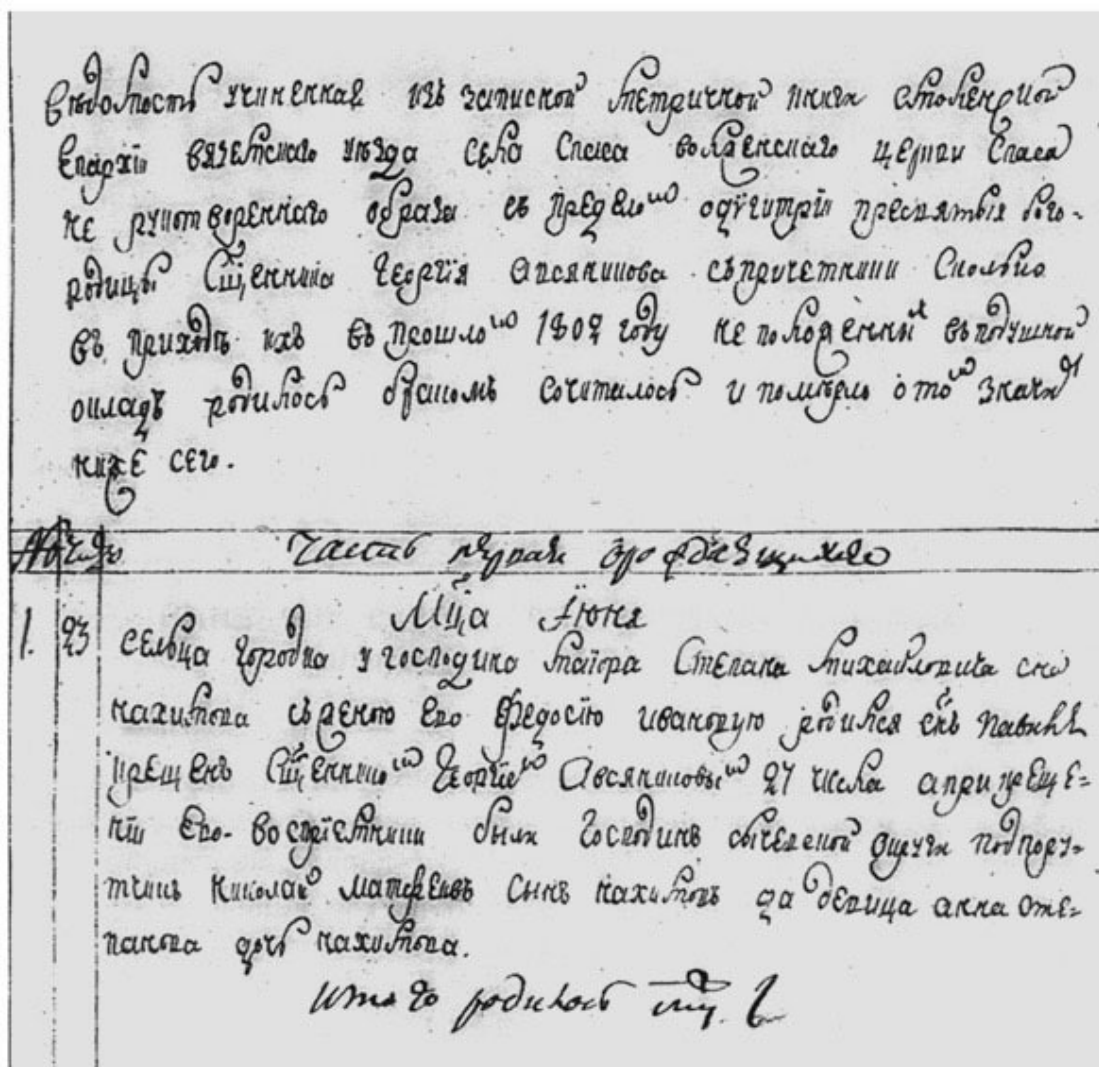 Ведомость учиненная изъ записной метричной книги смоленской
Епархiи вяземскаго уезда села Спаса волженскаго церкви Спаса
не рукотвореннаго образа съ пределомъ одигитрiи пресвятыя бого-
родицы Сщенника Георгiя Овсяникова съ причетники Сколько
въ приходѣ ихъ въ прошломъ 1802 году не положенныхъ въ подушной
окладъ родилось бракомъ сочиталось и померло о томъ значитъ
ниже сего.
№ число Часть первая о рождающихся
Мца Iюня
1. 23 сельца Городка у господина маiора Степана михайловича сна
нахимова съ женою Его Федосiю Ивановую родился снъ павелъ
крещенъ Сщенникомъ Георгiемъ Овсяниковымъ 27 числа а при креще-
нiи Его воспрiемники были Господинъ сычевской округи подпору-
тчикъ николай матфеевъ сынъ нахимовъ да девица анна сте-
панова дочь нахимова.
итого родилось муж.